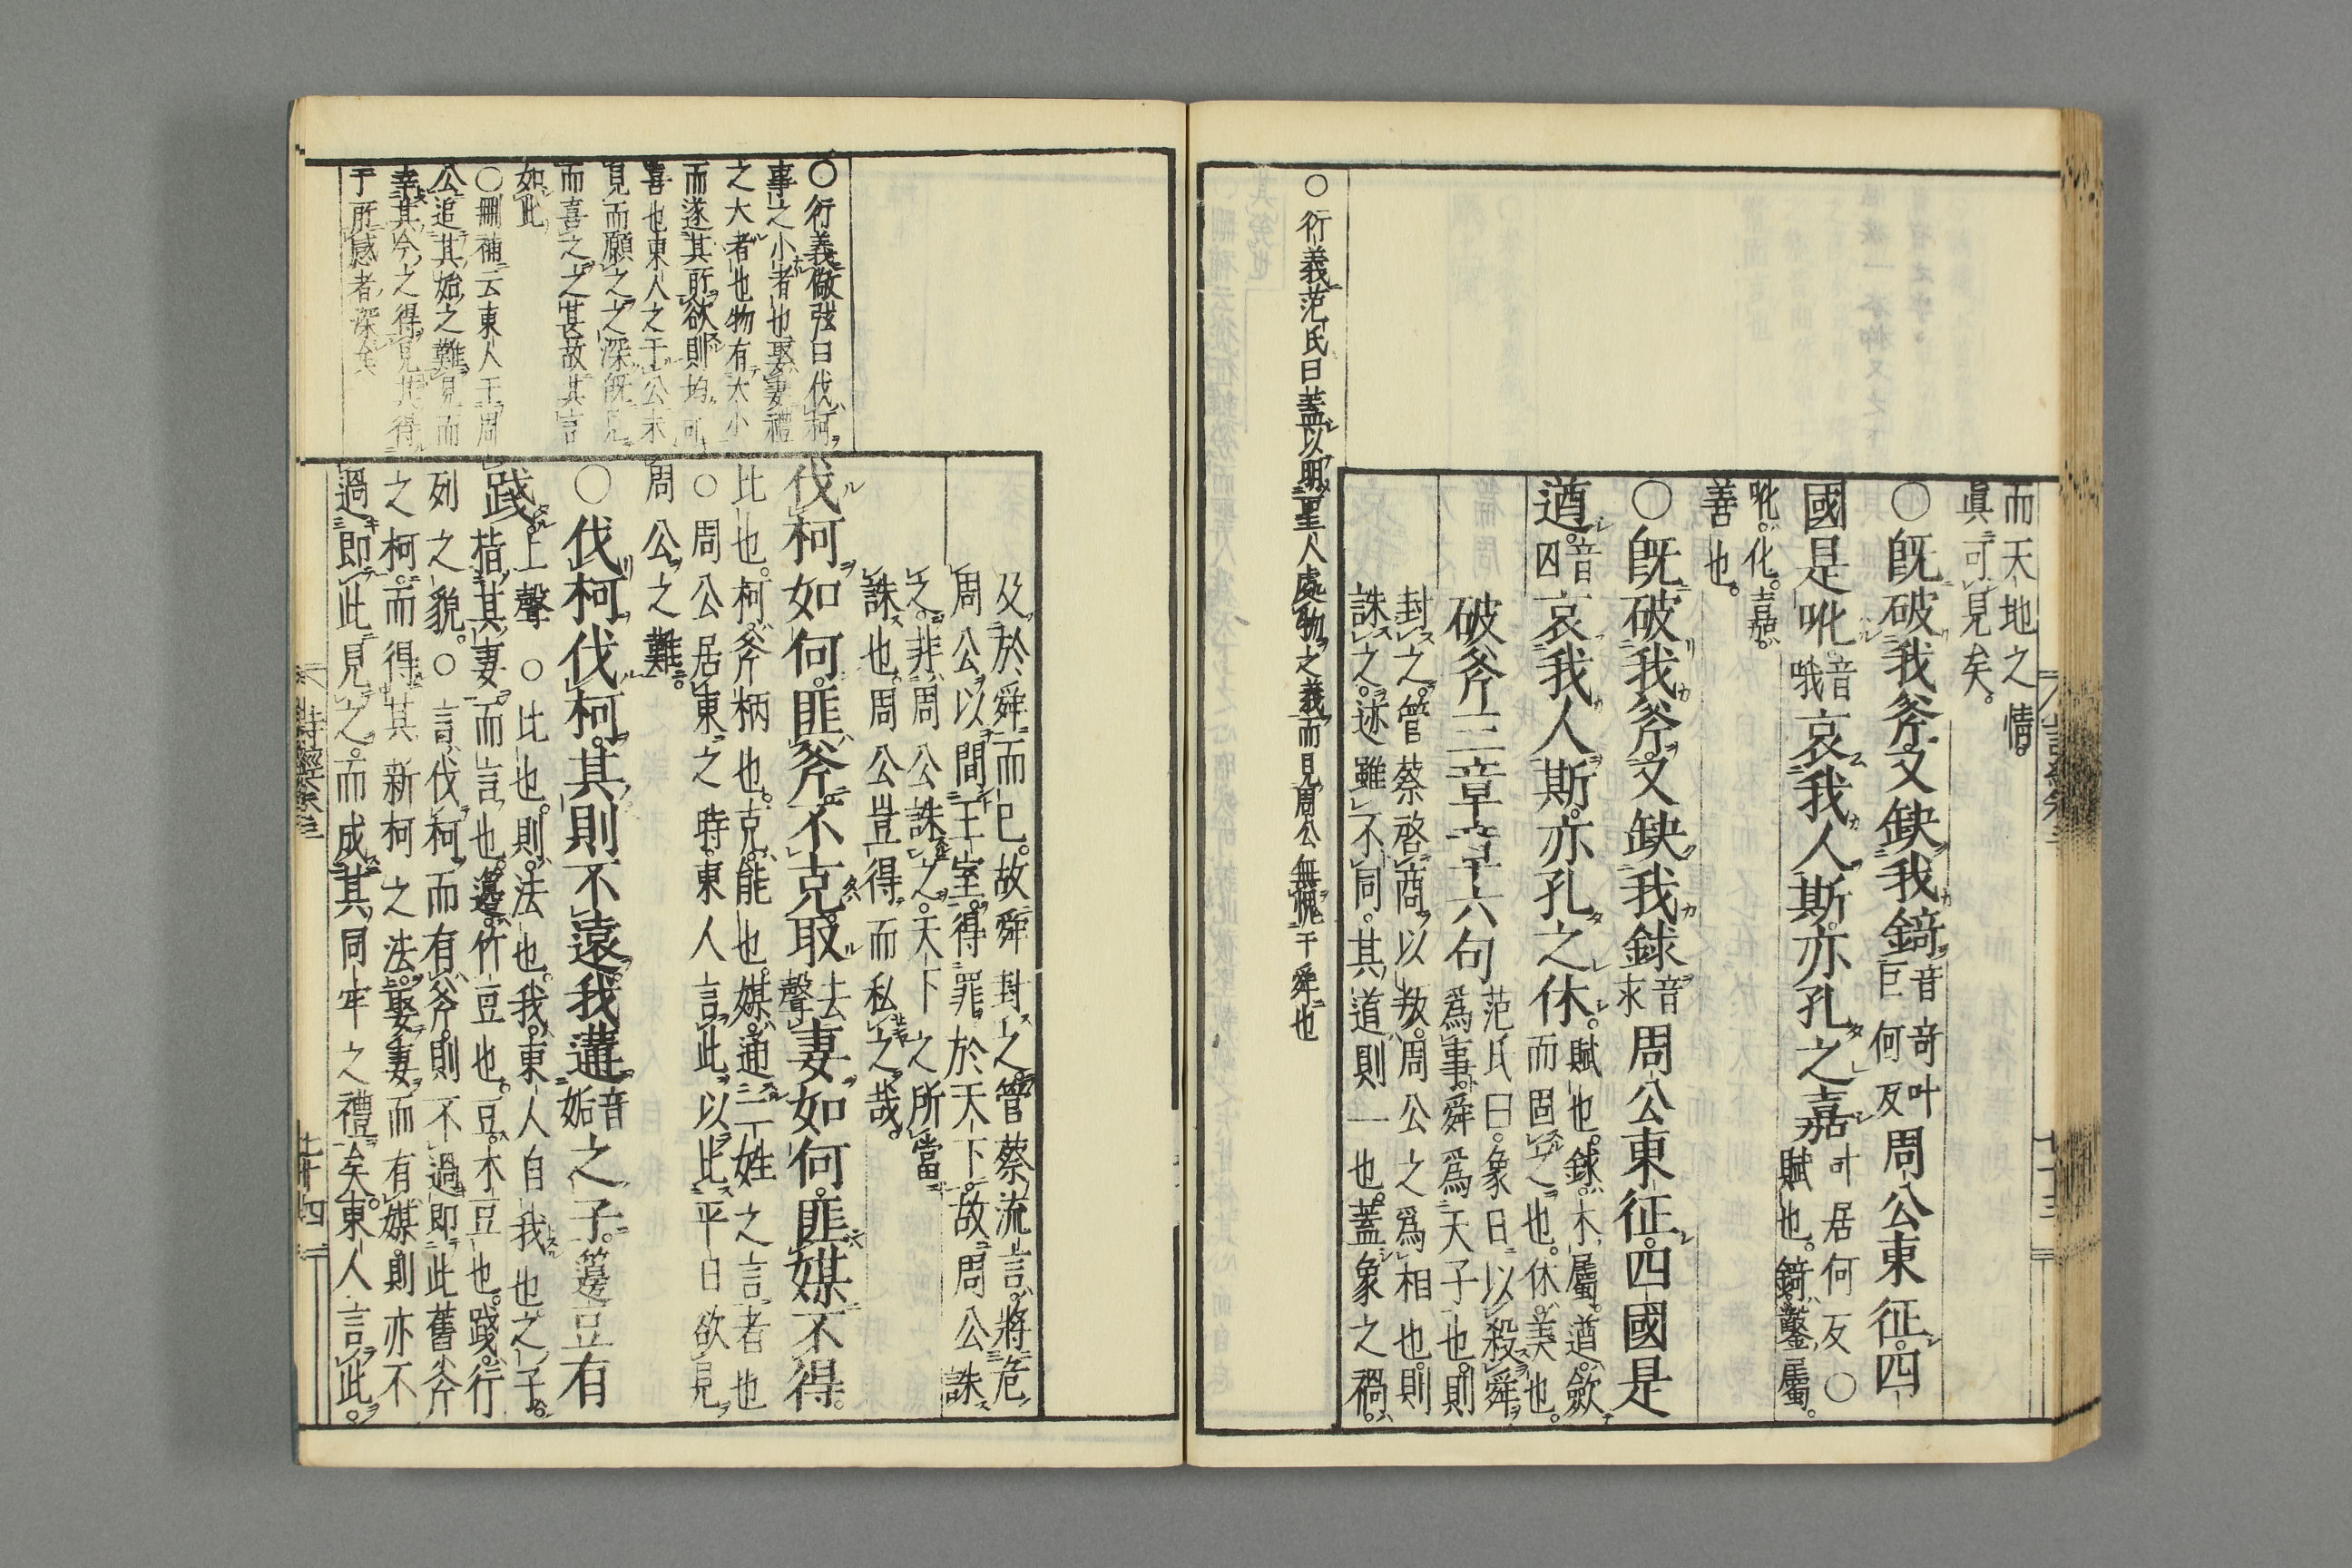 而天地之情。
眞可見矣。
○旣破我斧。又缺我錡。音奇叶巨何反周公東征。四
國是吪。音哦哀我人斯。亦孔之嘉。叶居何反○賦也。錡。鑿屬。
吪。化。嘉。
善也。
○旣破我斧。又缺我銶。音求周公東征。四國是
遒。音囚哀我人斯。亦孔之休。賦也。銶。木屬。遒。斂而固之也。休。美也。
破斧三章章六句范氏曰。象日以殺舜爲事。舜爲天子也。則
封之。管蔡啓商以叛。周公之爲相也。則
誅之。迹雖不同。其道則一也。蓋象之禍。
○衍義范氏曰蓋以明聖人處物之義而見周公無愧于舜也
及於舜而已。故舜封之。管蔡流言。將危
周公。以間王室。得罪於天下。故周公誅
之。非周公誅之。天下之所當
誅也。周公豈得而私之哉。
伐柯如何。匪斧不克。取去聲妻如何。匪媒不得。
比也。柯。斧柄也。克。能也。媒。通二姓之言者也
○周公居東之時。東人言此。以比平日欲見
周公之難。
○伐柯伐柯。其則不遠。我遘音姤之子。籩豆有
踐。上聲○比也。則。法也。我。東人自我也。之子。
指其妻。而言也。籩。竹豆也。豆。木豆也。踐。行
列之貌。○言伐柯而有斧。則不過即此舊斧
之柯。而得其新柯之法。娶妻而有媒。則亦不
過即此見之。而成其同牢之禮矣。東人言此。
○衍義儆弦曰伐柯
事之小者也娶妻禮
之大者也物有大小
而遂其所欲則均可
喜也東人之于公未
見而願之之深旣見
而喜之之甚故其言
如此
○刪補云東人于周
公追其始之難見而
幸其今之得見其得
于所感者深矣
詩經卷三
七十四